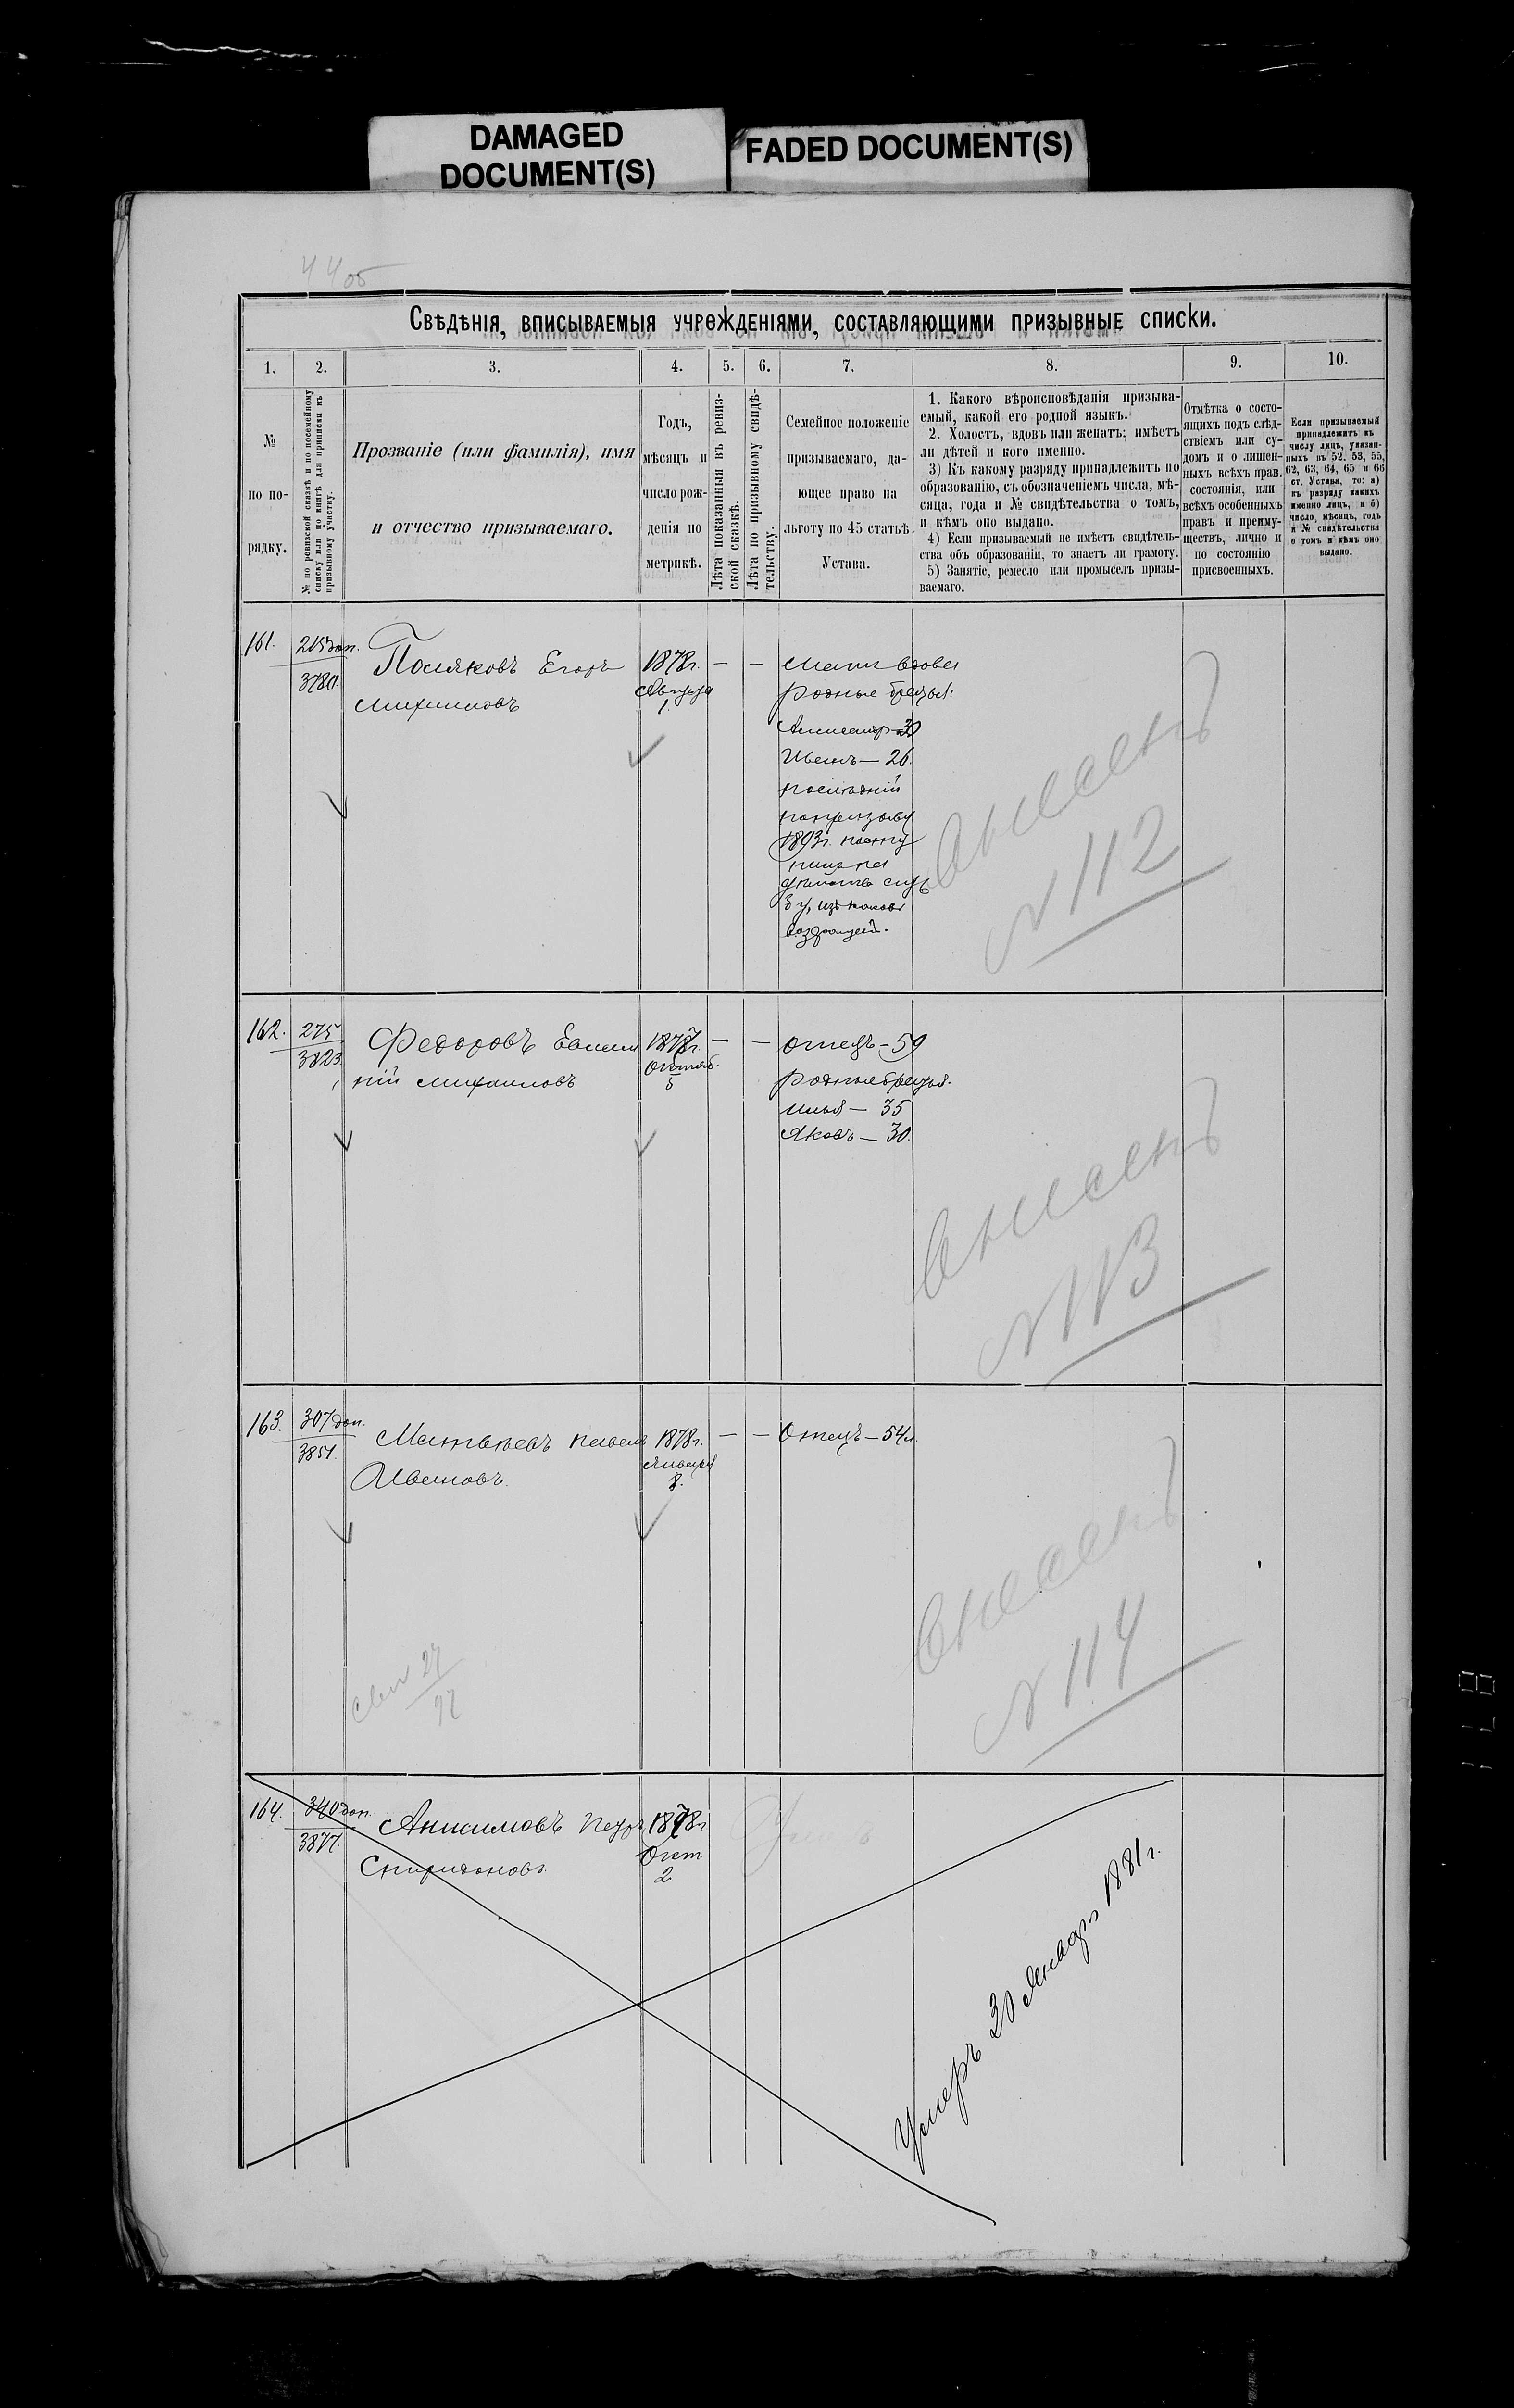 DAMAGED
DOCUMENT(S)
FADED DOCUMENT(S)
44 об
Свѣдѣнія, вписываемыя учрежденіями, составляющими призывные списки.
1.
2.
3.
4.
5.
6.
7.
8.
9.
10.
№
по по-
рядку.
№ по ревизской сказкѣ и по посемейному
списку или по книгѣ для приписки къ
призывному участку.
Прозваніе (или фамилія), имя
и отчество призываемаго.
Годъ,
мѣсяцъ и
число рож-
денія по
метрикѣ.
Лѣта показанныя въ ревиз-
ской сказкѣ.
Лѣта по призывному свидѣ-
тельству.
Семейное положеніе
призываемаго, да-
ющее право на
льготу по 45 статьѣ
Устава.
1. Какого вѣроисповѣданія призыва-
емый, какой его родной языкъ.
2. Холостъ, вдовъ или женатъ; имѣетъ
ли дѣтей и кого именно.
3) Къ какому разряду принадлежитъ по
образованію, съ обозначеніемъ числа, мѣ-
сяца, года и № свидѣтельства о томъ,
и кѣмъ оно выдано.
4) Если призываемый не имѣетъ свидѣтель-
ства объ образованіи, то знаетъ ли грамоту.
5) Занятіе, ремесло или промыселъ призы-
ваемаго.
Отмѣтка о состо-
ящихъ подъ слѣд-
ствіемъ или су-
домъ и о лишен-
ныхъ всѣхъ прав.
состоянія, или
всѣхъ особенныхъ
правъ и преиму-
ществъ, лично и
по состоянію
присвоенныхъ.
Если призываемый
принадлежитъ къ
числу лицъ, указан-
ныхъ въ 52, 53, 55,
62, 63, 64, 65 и 66
ст. Устава, то: а)
къ разряду какихъ
именно лицъ, и б)
число, мѣсяцъ, годъ
и № свидѣтельства
о томъ и кѣмъ оно
выдано.
161.
215 доп.
3780.
Поляковъ Егоръ
Михаиловъ
1878 г.
Августа
1.
— —
Мать вдова
родные братья:
Александръ — 30
Иванъ — 26.
послѣдній
по призыву
1893 г. посту
пилъ на
возвращен.
Внесенъ
№ 112
162.
275
3823
Федоровъ Евгені
ній Михаиловъ
1878 г.
Октяб.
5
— —
отецъ — 59
родные братья.
Илья — 35
Яковъ — 30.
Внесенъ
№ 113
163.
307 доп.
3851.
Матвѣевъ Павелъ
Ивановъ.
1878 г.
Января
8.
— —
Отецъ — 54 л.
Внесенъ
№ 114
164.
340 доп.
3877.
Анисимовъ Петръ
Спиридоновъ
1878 г
Окт
2
Умеръ 30 Января 1881 г.